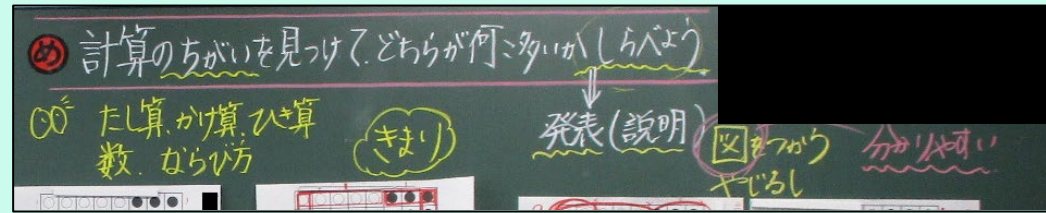 め 計算のちがいを見つけて、どちらが何こ多いかしらべよう
たし算、かけ算、ひき算
数、ならび方
きまり
発表(説明)
図をつかう
やじるし
分かりやすい